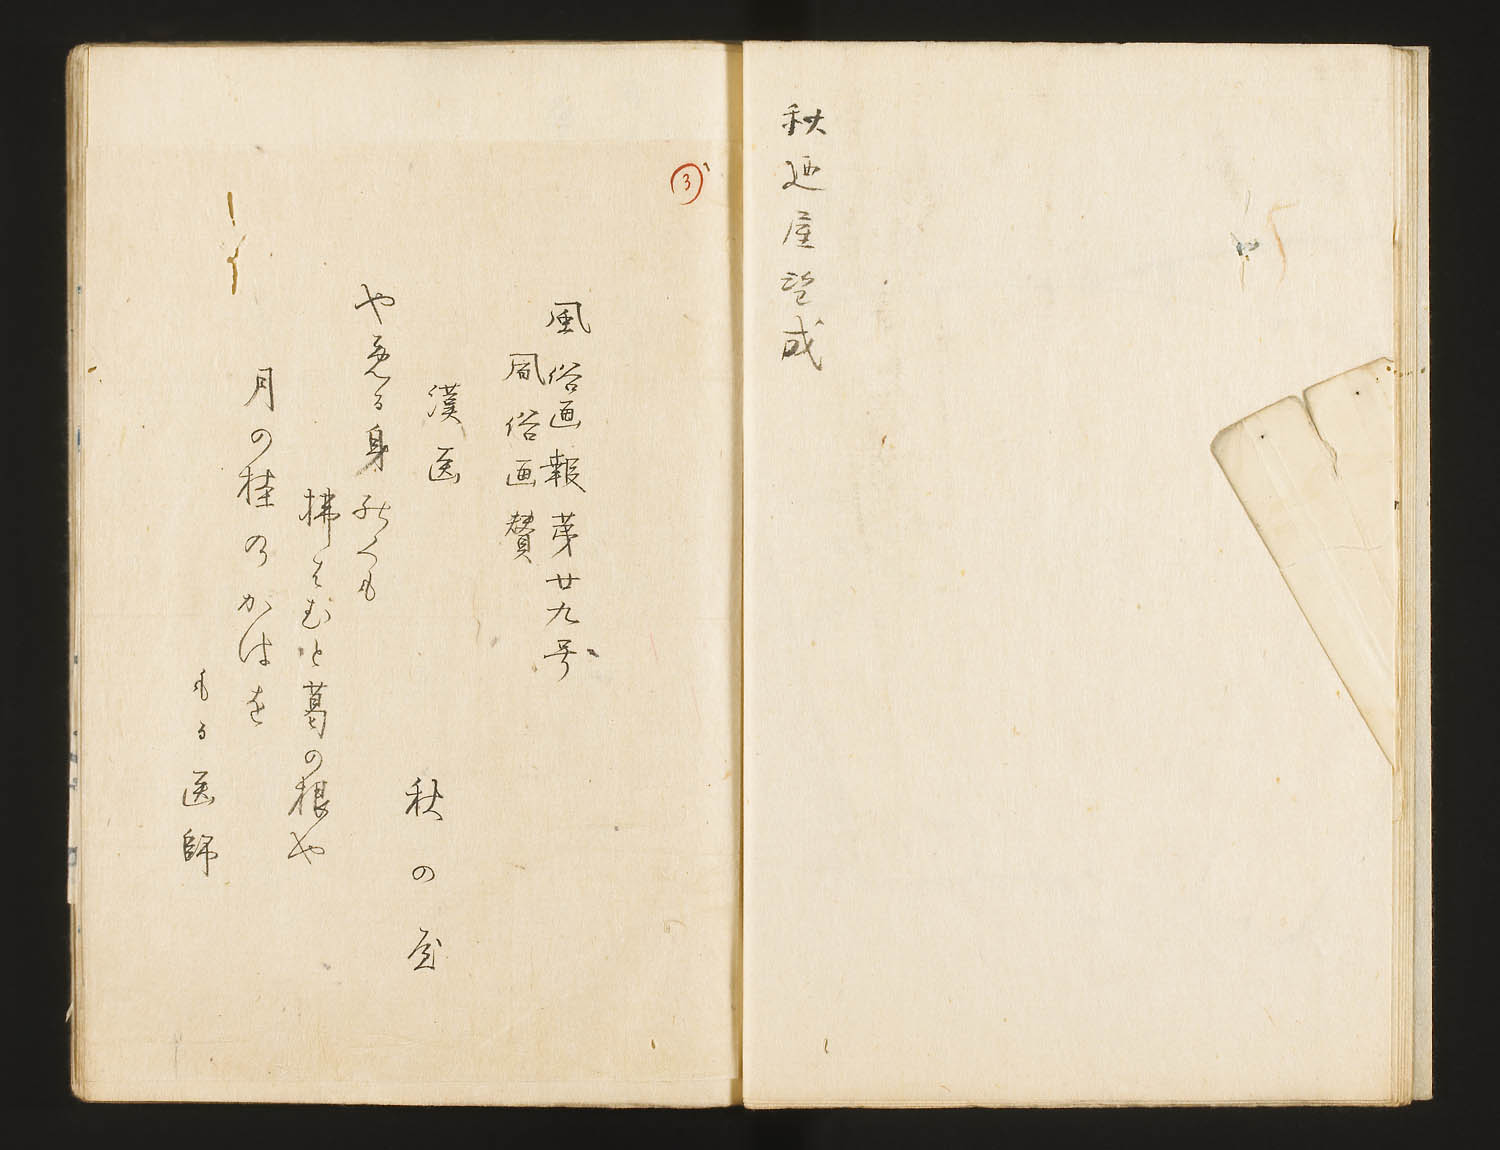 秋廼屋望成
3
風俗画報第廿九号
風俗画賛
漢医
秋の屋
やめる身のくも
拂はむと葛の根や
月の桂のかはを
もる医師